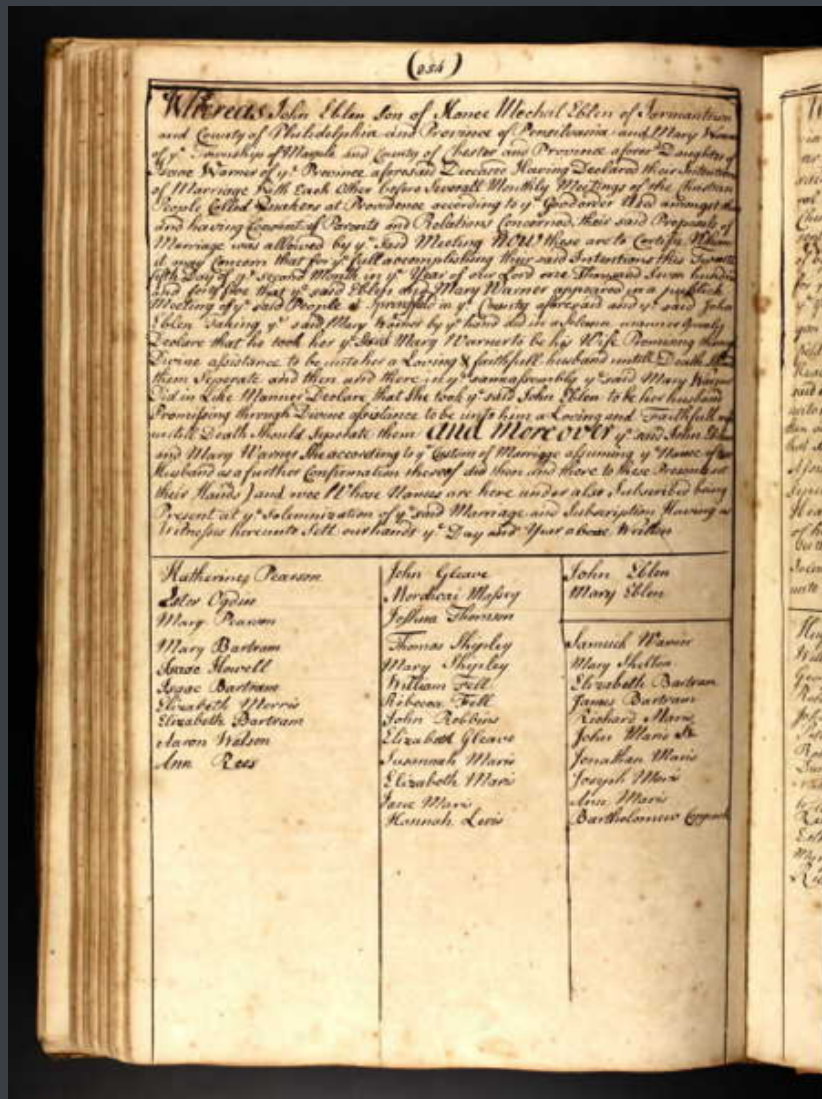 (254)
Whereas John Eblen Son of Hance Mechal Eblen of Jermantown
and County of Philadelphia and Province of Pensilvania and Mary Warner
of yᵉ Township of Marple and County of Chester and Province aforesᵈ Daughter of
Isaac Warner of yᵉ Province aforesaid Deceased Having Declared their Intentions
of Marriage with Each Other before Severall Monthly Meetings of the Christian
People Called Quakers at Providence according to yᵉ Good order Used amongst them
and having Consent of Parents and Relations Concerned, their said Proposals of
Marriage was allowed by yᵉ Said Meeting NOW these are to Certifie Whom
it may Concern that for yᵉ full accomplishing their said Intentions this Twenty
fifth Day of yᵉ Second Month in yᵉ Year of our Lord one Thousand Seven hundred
and forty five that yᵉ said Eblen and Mary Warner appeared in a publick
Meeting of yᵉ said People at Springfield in yᵉ County aforesaid and yᵉ said John
Eblen Taking yᵉ said Mary Warner by yᵉ hand did in a Solemn manner Openly
Declare that he took her yᵉ Said Mary Warner to be his Wife Promising through
Divine assistance to be unto her a Loving & faithfull husband untill Death
them Seperate and then and there in yᵉ same assembly yᵉ said Mary Warner
Did in Like Manner Declare that She took yᵉ said John Eblen to be her husband
Promising through Divine assistance to be unto him a Loving and Faithfull
untill Death Should Seperate them and moreover yᵉ said John Eblen
and Mary Warner She according to yᵉ Custom of Marriage assuming yᵉ Name of
Husband as a further Confirmation thereof did then and there to these Presents set
their Hands) and wee Whose Names are here under also Subscribed being
Present at yᵉ Solemnization of yᵉ said Marriage and Subscription Having as
Witnesses hereunto Sett our hands yᵉ Day and Year above Written
Katherine Pearson
Ester Ogden
Mary Pearson
Mary Bartram
Isaac Howell
Isaac Bartram
Elizabeth Morris
Elizabeth Bartram
Aaron Watson
Ann Rees
John Gleave
Mordicai Massey
Joshua Thomson
Thomas Shipley
Mary Shipley
William Fell
Rebecca Fell
John Robbins
Elizabeth Gleave
Susannah Maris
Elizabeth Maris
Jane Maris
Hannah Levis
John Eblen
Mary Eblen
Samuel Warner
Mary Shelton
Elizabeth Bartram
James Bartram
Richard Maris
John Maris Jr
Jonathan Maris
Joseph Maris
Ann Maris
Bartholomew Coppock